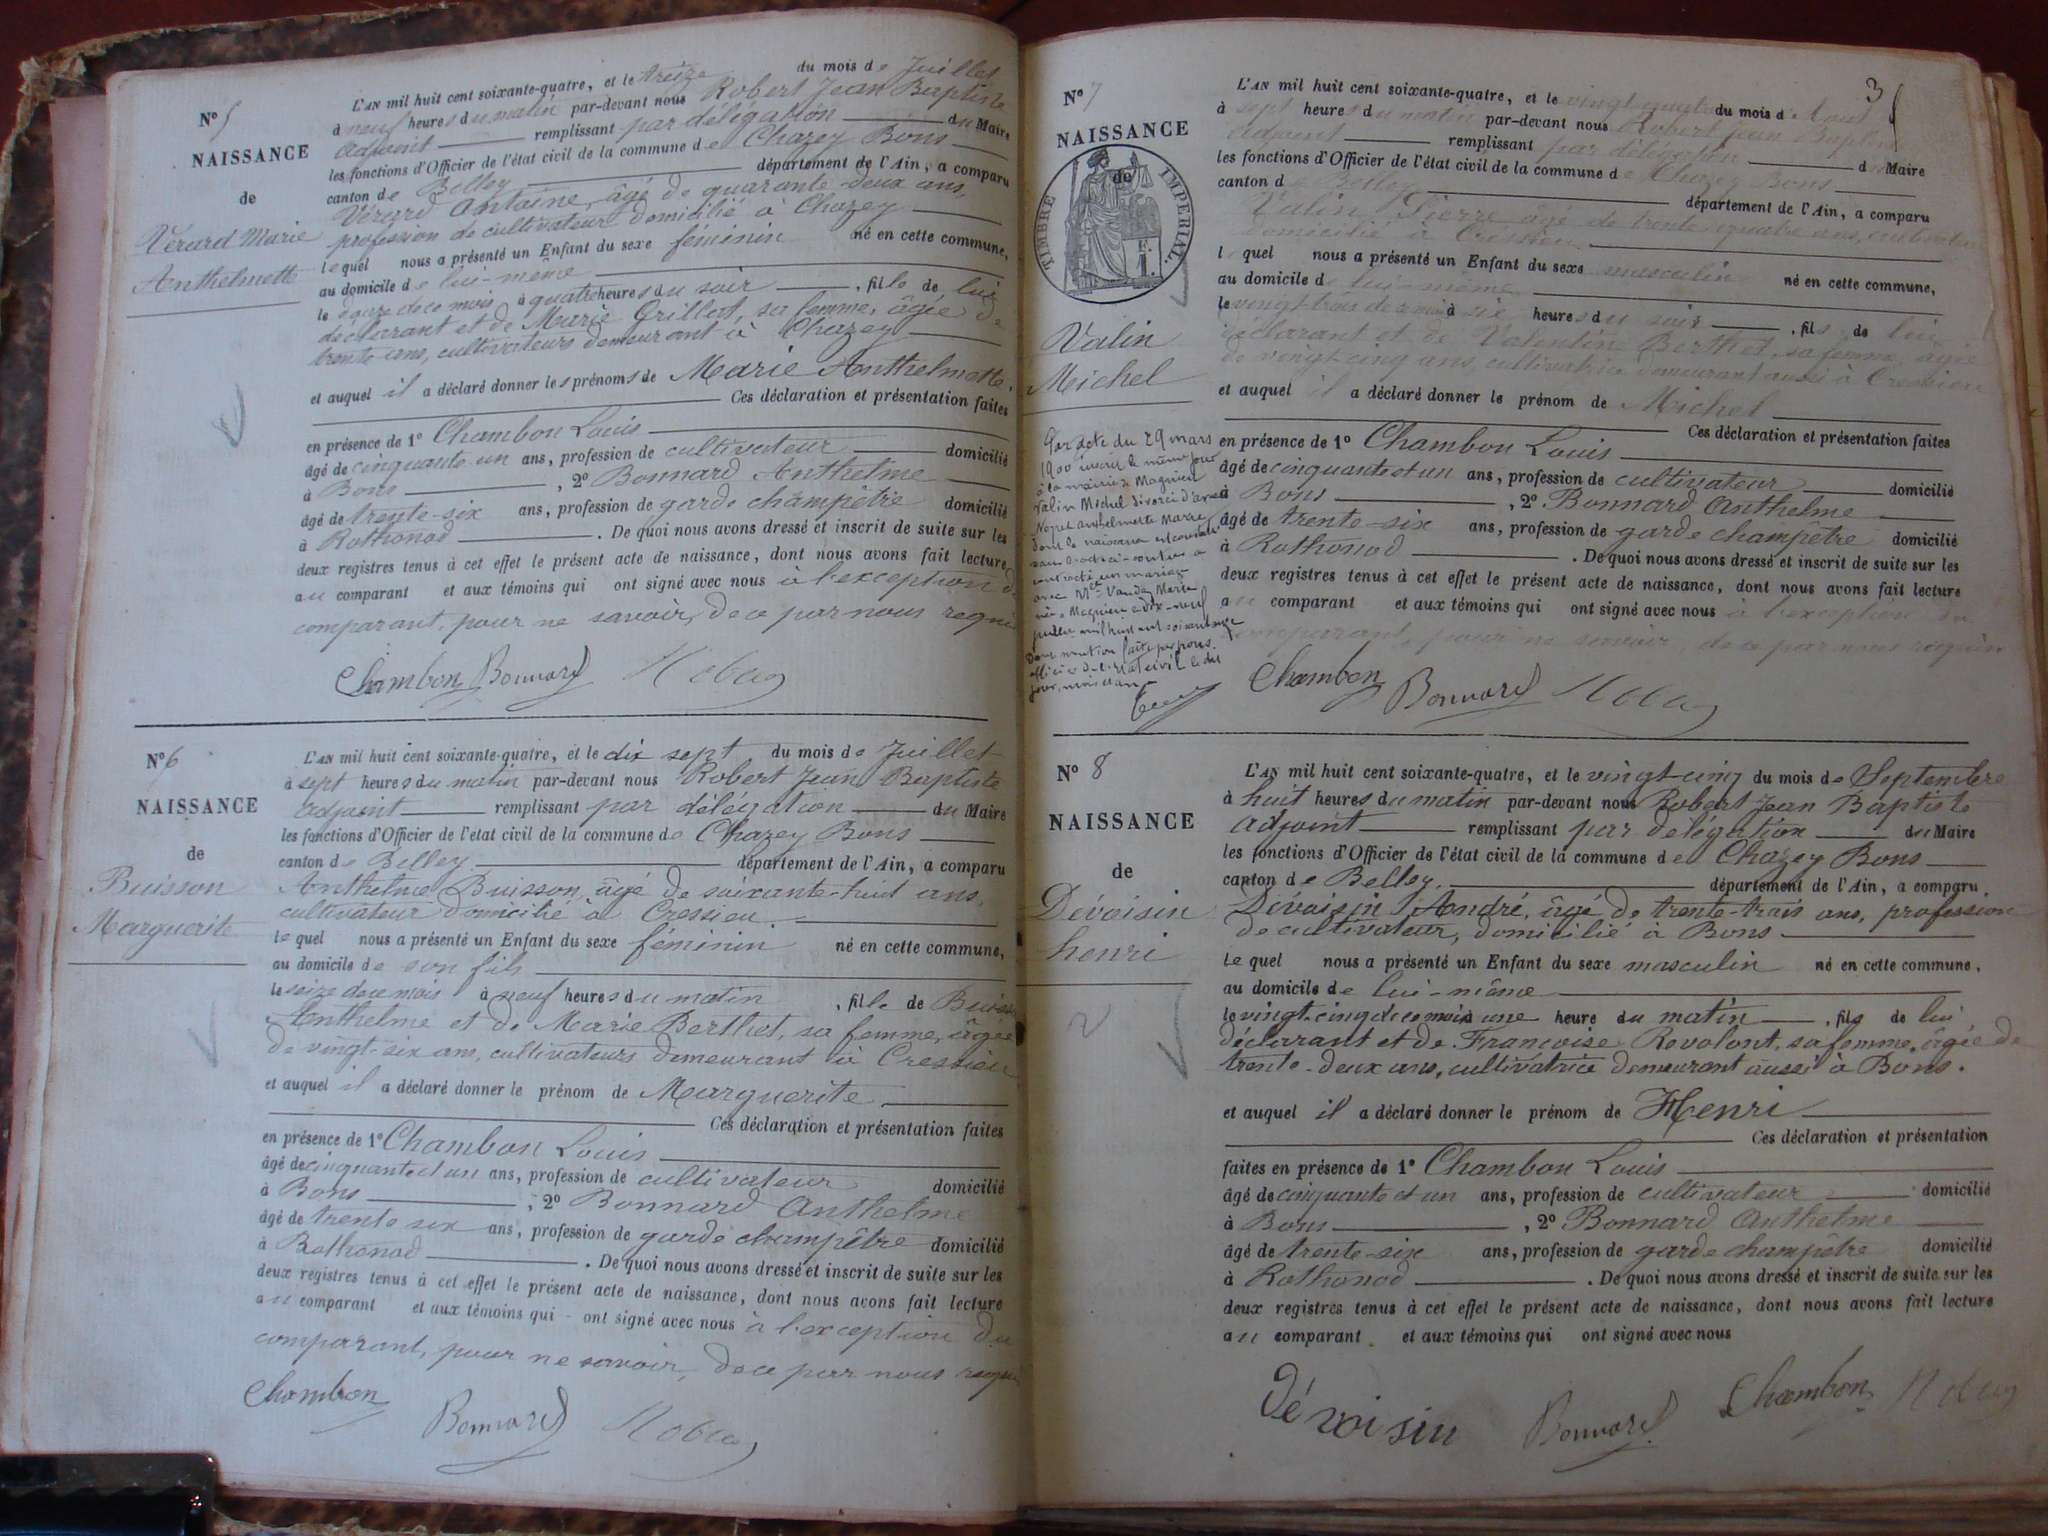 N° 5
NAISSANCE
de
Vérard Marie
Anthelmette
L'AN mil huit cent soixante-quatre, et le treize du mois de Juillet
à neuf heures du matin par-devant nous Robert Jean Baptiste
adjoint remplissant par délégation du Maire
les fonctions d'Officier de l'état civil de la commune de Chazey Bons
canton de Belley département de l'Ain, a comparu
Vérard Antoine, âgé de quarante-deux ans,
profession de cultivateur domicilié à Chazey
lequel nous a présenté un Enfant du sexe féminin né en cette commune,
au domicile de lui-même
le douze de ce mois à quatre heures du soir, fille de lui
déclarant et de Marie Grillot, sa femme, âgée de
trente ans, cultivateurs demeurant à Chazey
et auquel il a déclaré donner les prénoms de Marie Anthelmette.
Ces déclaration et présentation faites
en présence de 1° Chambon Louis
âgé de cinquante un ans, profession de cultivateur domicilié
à Bons, 2° Bonnard Anthelme
âgé de trente-six ans, profession de garde champêtre domicilié
à Rothonod. De quoi nous avons dressé et inscrit de suite sur les
deux registres tenus à cet effet le présent acte de naissance, dont nous avons fait lecture
au comparant et aux témoins qui ont signé avec nous à l'exception du
comparant, pour ne savoir, de ce par nous requis
Chambon Bonnard
N° 6
NAISSANCE
de
Buisson
Marguerite
L'AN mil huit cent soixante-quatre, et le dix sept du mois de Juillet
à sept heures du matin par-devant nous Robert Jean Baptiste
adjoint remplissant par délégation du Maire
les fonctions d'Officier de l'etat civil de la commune de Chazey Bons
canton de Belley département de l'Ain, a comparu
Anthelme Buisson, âgé de soixante-huit ans,
cultivateur domicilié à Cressieu
lequel nous a présenté un Enfant du sexe féminin né en cette commune,
au domicile de son fils
le seize de ce mois à neuf heures du matin, fille de Buisson
Anthelme et de Marie Berthet, sa femme, âgée
de vingt-six ans, cultivateurs demeurant à Cressieu
et auquel il a déclaré donner le prénom de Marguerite
Ces déclaration et présentation faites
en présence de 1° Chambon Louis
âgé de cinquante et un ans, profession de cultivateur domicilié
à Bons, 2° Bonnard Anthelme
âgé de trente six ans, profession de garde champêtre domicilié
à Rothonod. De quoi nous avons dressé et inscrit de suite sur les
deux registres tenus à cet effet le présent acte de naissance, dont nous avons fait lecture
au comparant et aux témoins qui ont signé avec nous à l'exception du
comparant, pour ne savoir, de ce par nous requis
Chambon Bonnard
3
N° 7
NAISSANCE
de
TIMBRE IMPERIAL.
Valin
Michel
Par acte du 29 mars
1900 inscrit le même jour
à la mairie de Magnieu
Valin Michel divorcé d'avec
Marie
dont la naissance est constatée
ci-contre a
contracté un mariage
avec
née à Magnieu
juillet mil huit cent soixante
Dont mention faite par nous
officier de l'Etat civil
jour, mois et an
L'AN mil huit cent soixante-quatre, et le vingt-quatre du mois d'Aout
à sept heures du matin par-devant nous Robert Jean Baptiste
adjoint remplissant par délégation du Maire
les fonctions d'Officier de l'état civil de la commune de Chazey Bons
canton de Belley département de l'Ain, a comparu
Valin Pierre âgé de trente-quatre ans, cultivateur
domicilié à Cressieu
lequel nous a présenté un Enfant du sexe masculin né en cette commune,
au domicile de lui-même
le vingt-trois de ce mois à six heures du soir, fils de lui
déclarant et de Valentine Berthet, sa femme, âgée
de vingt-cinq ans, cultivatrice demeurant aussi à Cressieu
et auquel il a déclaré donner le prénom de Michel
Ces déclaration et présentation faites
en présence de 1° Chambon Louis
âgé de cinquante et un ans, profession de cultivateur domicilié
à Bons, 2° Bonnard Anthelme
âgé de trente-six ans, profession de garde champêtre domicilié
à Rothonod. De quoi nous avons dressé et inscrit de suite sur les
deux registres tenus à cet effet le présent acte de naissance, dont nous avons fait lecture
au comparant et aux témoins qui ont signé avec nous à l'exception du
comparant, pour ne savoir, de ce par nous requis
Chambon Bonnard
N° 8
NAISSANCE
de
Dévoisin
henri
2
L'AN mil huit cent soixante-quatre, et le vingt-cinq du mois de Septembre
à huit heures du matin par-devant nous Robert Jean Baptiste
adjoint remplissant par délégation du Maire
les fonctions d'Officier de l'état civil de la commune de Chazey Bons
canton de Belley département de l'Ain, a comparu
Dévoisin André, âgé de trente-trois ans, profession
de cultivateur, domicilié à Bons
lequel nous a présenté un Enfant du sexe masculin né en cette commune,
au domicile de lui-même
le vingt-cinq de ce mois à une heure du matin, fils de lui
déclarant et de Françoise Revolont, sa femme, âgée de
trente-deux ans, cultivatrice demeurant aussi à Bons.
et auquel il a déclaré donner le prénom de Henri
Ces déclaration et présentation
faites en présence de 1° Chambon Louis
âgé de cinquante et un ans, profession de cultivateur domicilié
à Bons, 2° Bonnard Anthelme
âgé de trente-six ans, profession de garde champêtre domicilié
à Rothonod. De quoi nous avons dressé et inscrit de suite sur les
deux registres tenus à cet effet le présent acte de naissance, dont nous avons fait lecture
au comparant et aux témoins qui ont signé avec nous
Dévoisin Bonnard Chambon